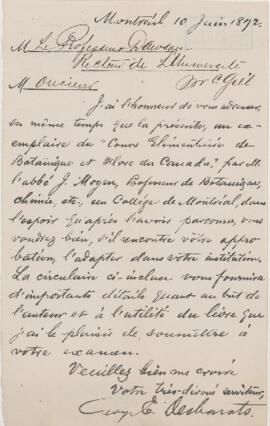 Montréal 10 Juin 1892.
M Le Professeur
Recteur de L'Université
McGill
M
J'ai l'honneur de vous adresser,
en même temps que la présente, un ex-
emplaire du "Cours Elémentaire de
Botanique et Flore du Canada", par M.
l'abbé J. Moyen, Professeur de Botanique,
chimie, etc., au Collège de Montréal, dans
l'espoir qu'après l'avoir parcouru, vous
voudrez bien, s'il rencontre votre appro-
bation, l'adopter dans votre institution.
La circulaire ci-incluse vous fournira
d'importants détails quant au but de
l'auteur et à l'utilité du livre que
j'ai le plaisir de soumettre à
votre examen.
Veuillez bien me croire
Votre très-dévoué serviteur,
Geo. E. Desbarats.